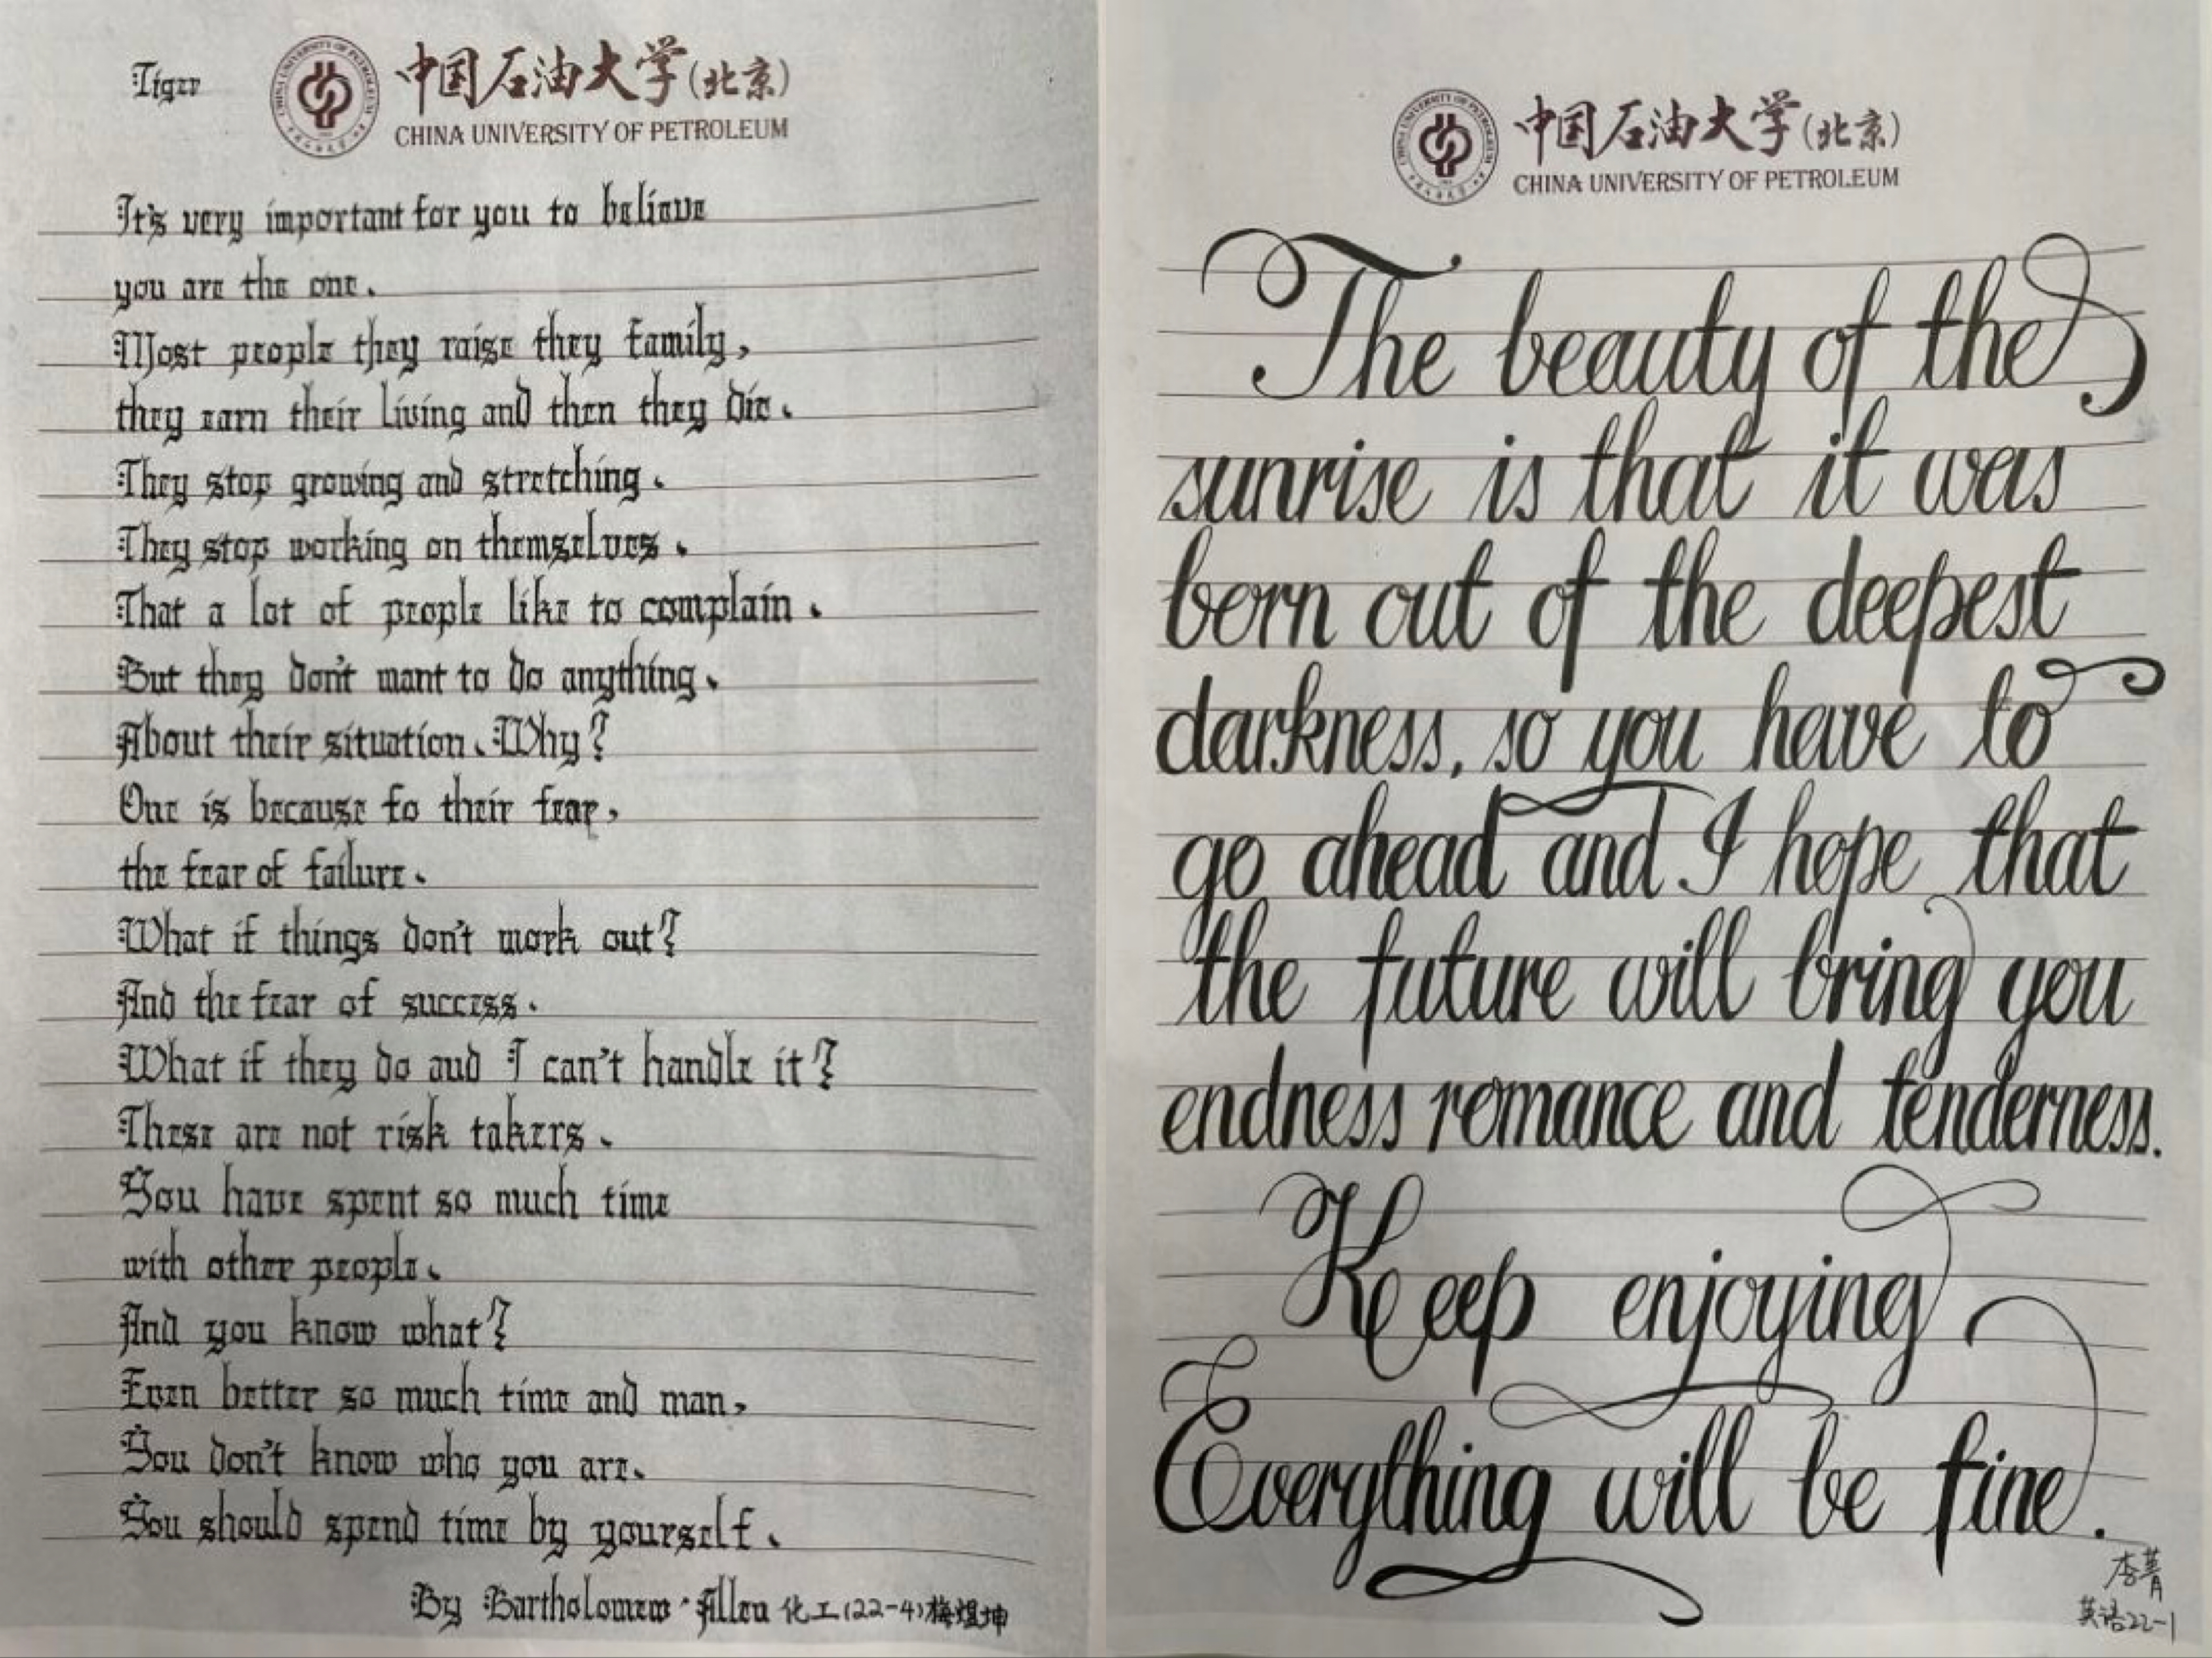 Tiger
中国石油大学(北京)
CHINA UNIVERSITY OF PETROLEUM
It's very important for you to believe
you are the one.
Most people they raise they family,
they earn their living and then they die.
They stop growing and stretching.
They stop working on themselves.
That a lot of people like to complain.
But they don't want to do anything.
About their situation. Why?
One is because fo their fear,
the fear of failure.
What if things don't work out?
And the fear of success.
What if they do aud I can't handle it?
These are not risk takers.
You have spent so much time
with other people.
And you know what?
Even better so much time and man,
You don't know who you are.
You should spend time by yourself.
By Bartholomew·Allen 化工(22-4)梅煜坤
中国石油大学(北京)
CHINA UNIVERSITY OF PETROLEUM
The beauty of the
sunrise is that it was
born out of the deepest
darkness, so you have to
go ahead and I hope that
the future will bring you
endness romance and tenderness.
Keep enjoying
Everything will be fine.
李菁
英语22-1